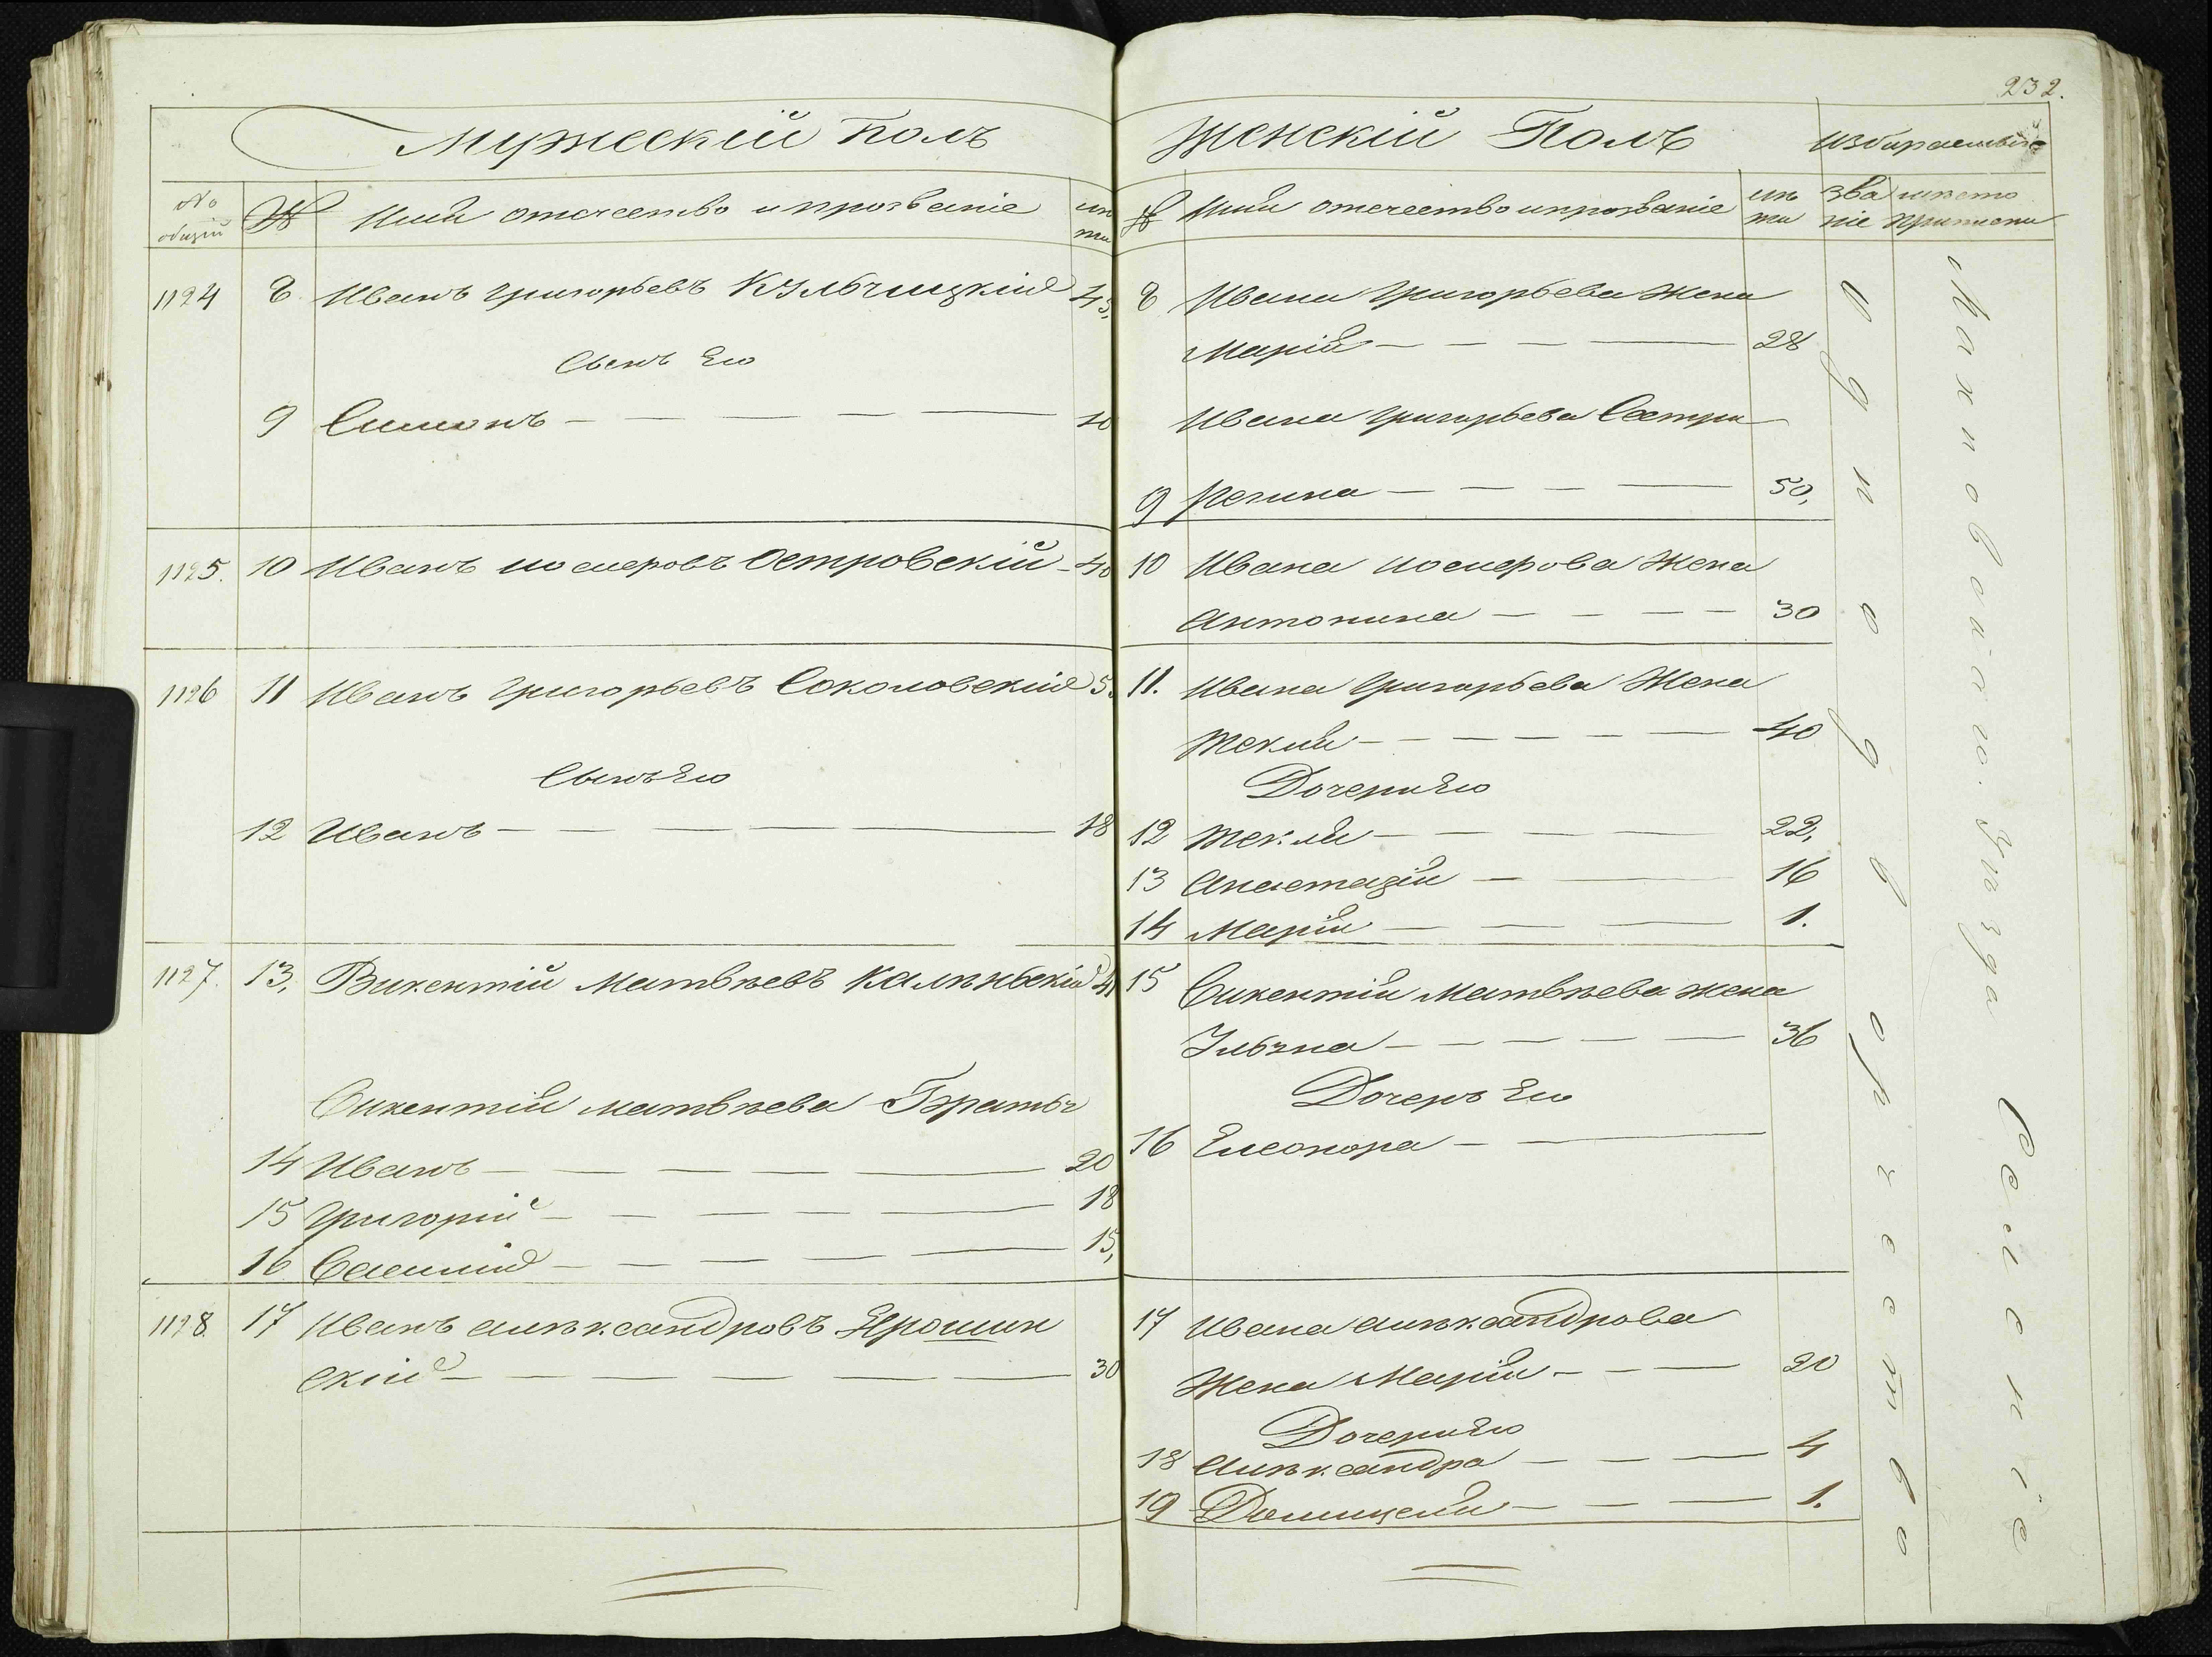 232.
Мужескій Полъ
№ общій
№
Имя отчество и прозваніе
лѣта
1124 8 Иванъ Григорьевъ Кульчицкій 45,
Сынъ Его
9 Симонъ 10
1125. 10 Иванъ Іосифовъ Островскій 40
1126 11 Иванъ Григорьевъ Соколовскій
Сынъ Его
12 Иванъ 18
1127. 13, Викентій Матвѣевъ 41
Викентія Матвѣева Братья
14 Иванъ 20
15 Григорій 18
16 15,
1128. 17 Иванъ Алѣксандровъ Ерошин
скій 30
Женскій Полъ
№
Имя отчество и прозваніе
лѣта
Избираемыя
званіе
мѣсто приписки
8 Ивана Григорьева Жена
Марія 28
Ивана Григорьева Сестра
9 Регина 50,
10 Ивана Іосифова Жена
Антонина 30
11. Ивана Григорьева Жена
Текля 40
Дочери Его
12 Текля 22,
13 Анастазія 16
14 Марія 1.
15 Викентія Матвѣева жена
Ульяна 36
Дочерь Его
16 Елеонора
17 Ивана Алѣксандрова
Жена Марія 20
Дочери Его
18 Алѣксандра 4
19 Домицеля 1.
Однодворчество
Махновскаго Уѣзда Селеніе